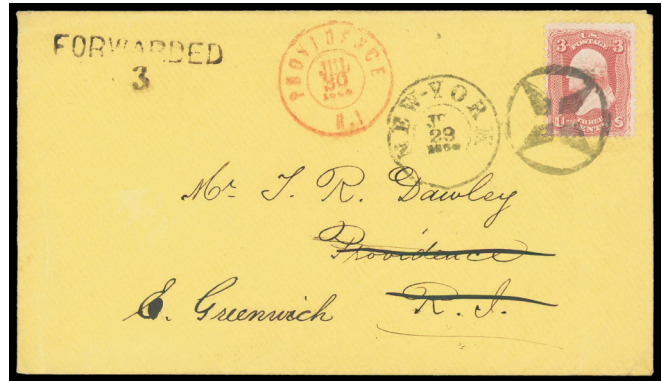 FORWARDED
3
PROVIDENCE
JUL
30
R.I
NEW-YORK
29
U.S.
POSTAGE
3 3
U THREE S
CENTS
Mr. T. R. Dawley
Providence
E. Greenwich R. I.